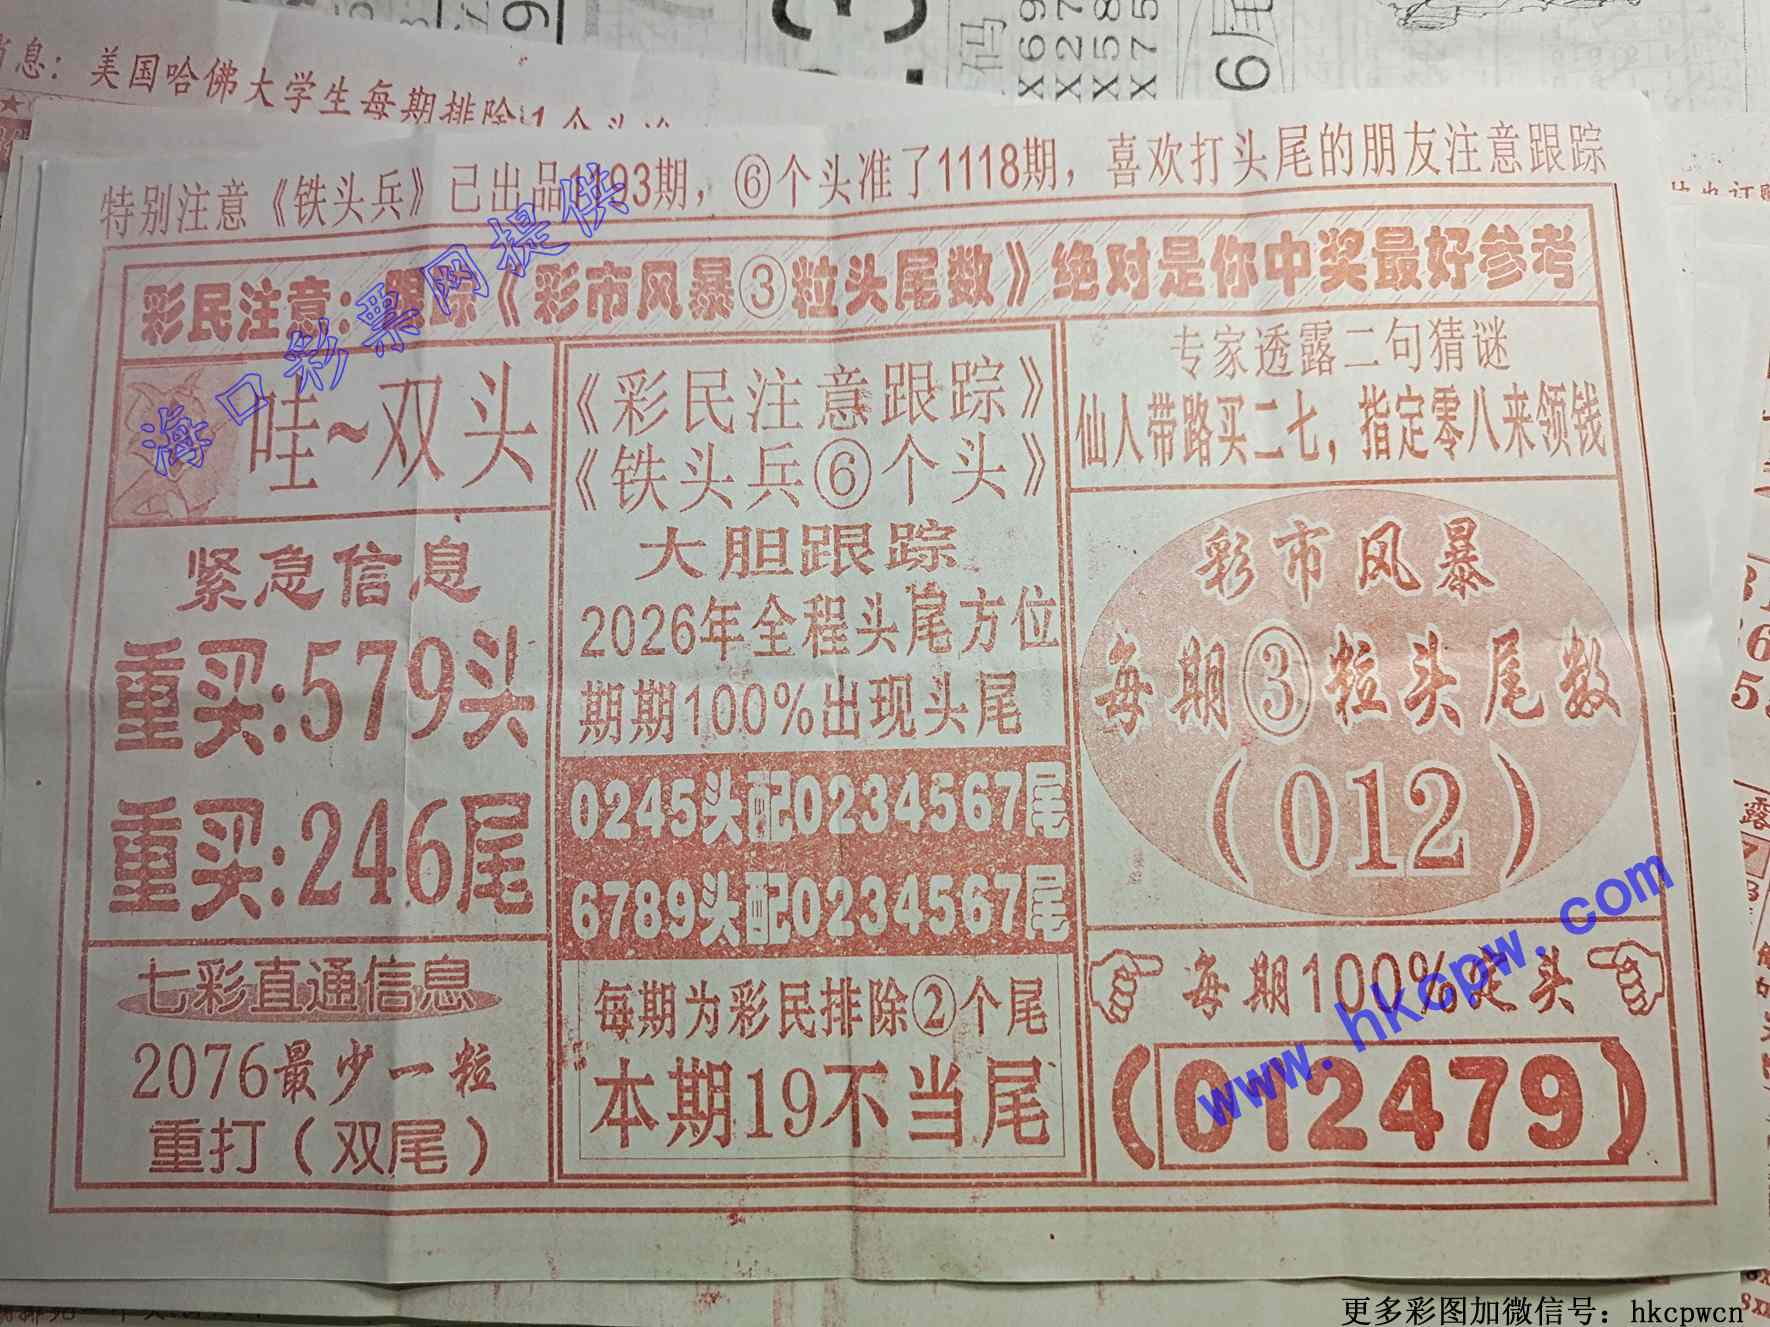 美国哈佛大学生每期排除1个头
特别注意《铁头兵》已出品1193期，⑥个头准了1118期，喜欢打头尾的朋友注意跟踪
彩民注意：跟踪《彩市风暴③粒头尾数》绝对是你中奖最好参考
哇~双头
紧急信息
重买:579头
重买:246尾
七彩直通信息
2076最少一粒
重打（双尾）
《彩民注意跟踪》
《铁头兵⑥个头》
大胆跟踪
2026年全程头尾方位
期期100%出现头尾
0245头配0234567尾
6789头配0234567尾
每期为彩民排除②个尾
本期19不当尾
专家透露二句猜谜
仙人带路买二七，指定零八来领钱
彩市风暴
每期③粒头尾数
（012）
每期100%定头
（012479）
海口彩票网提供
www.hkcpw.com
更多彩图加微信号：hkcpwcn